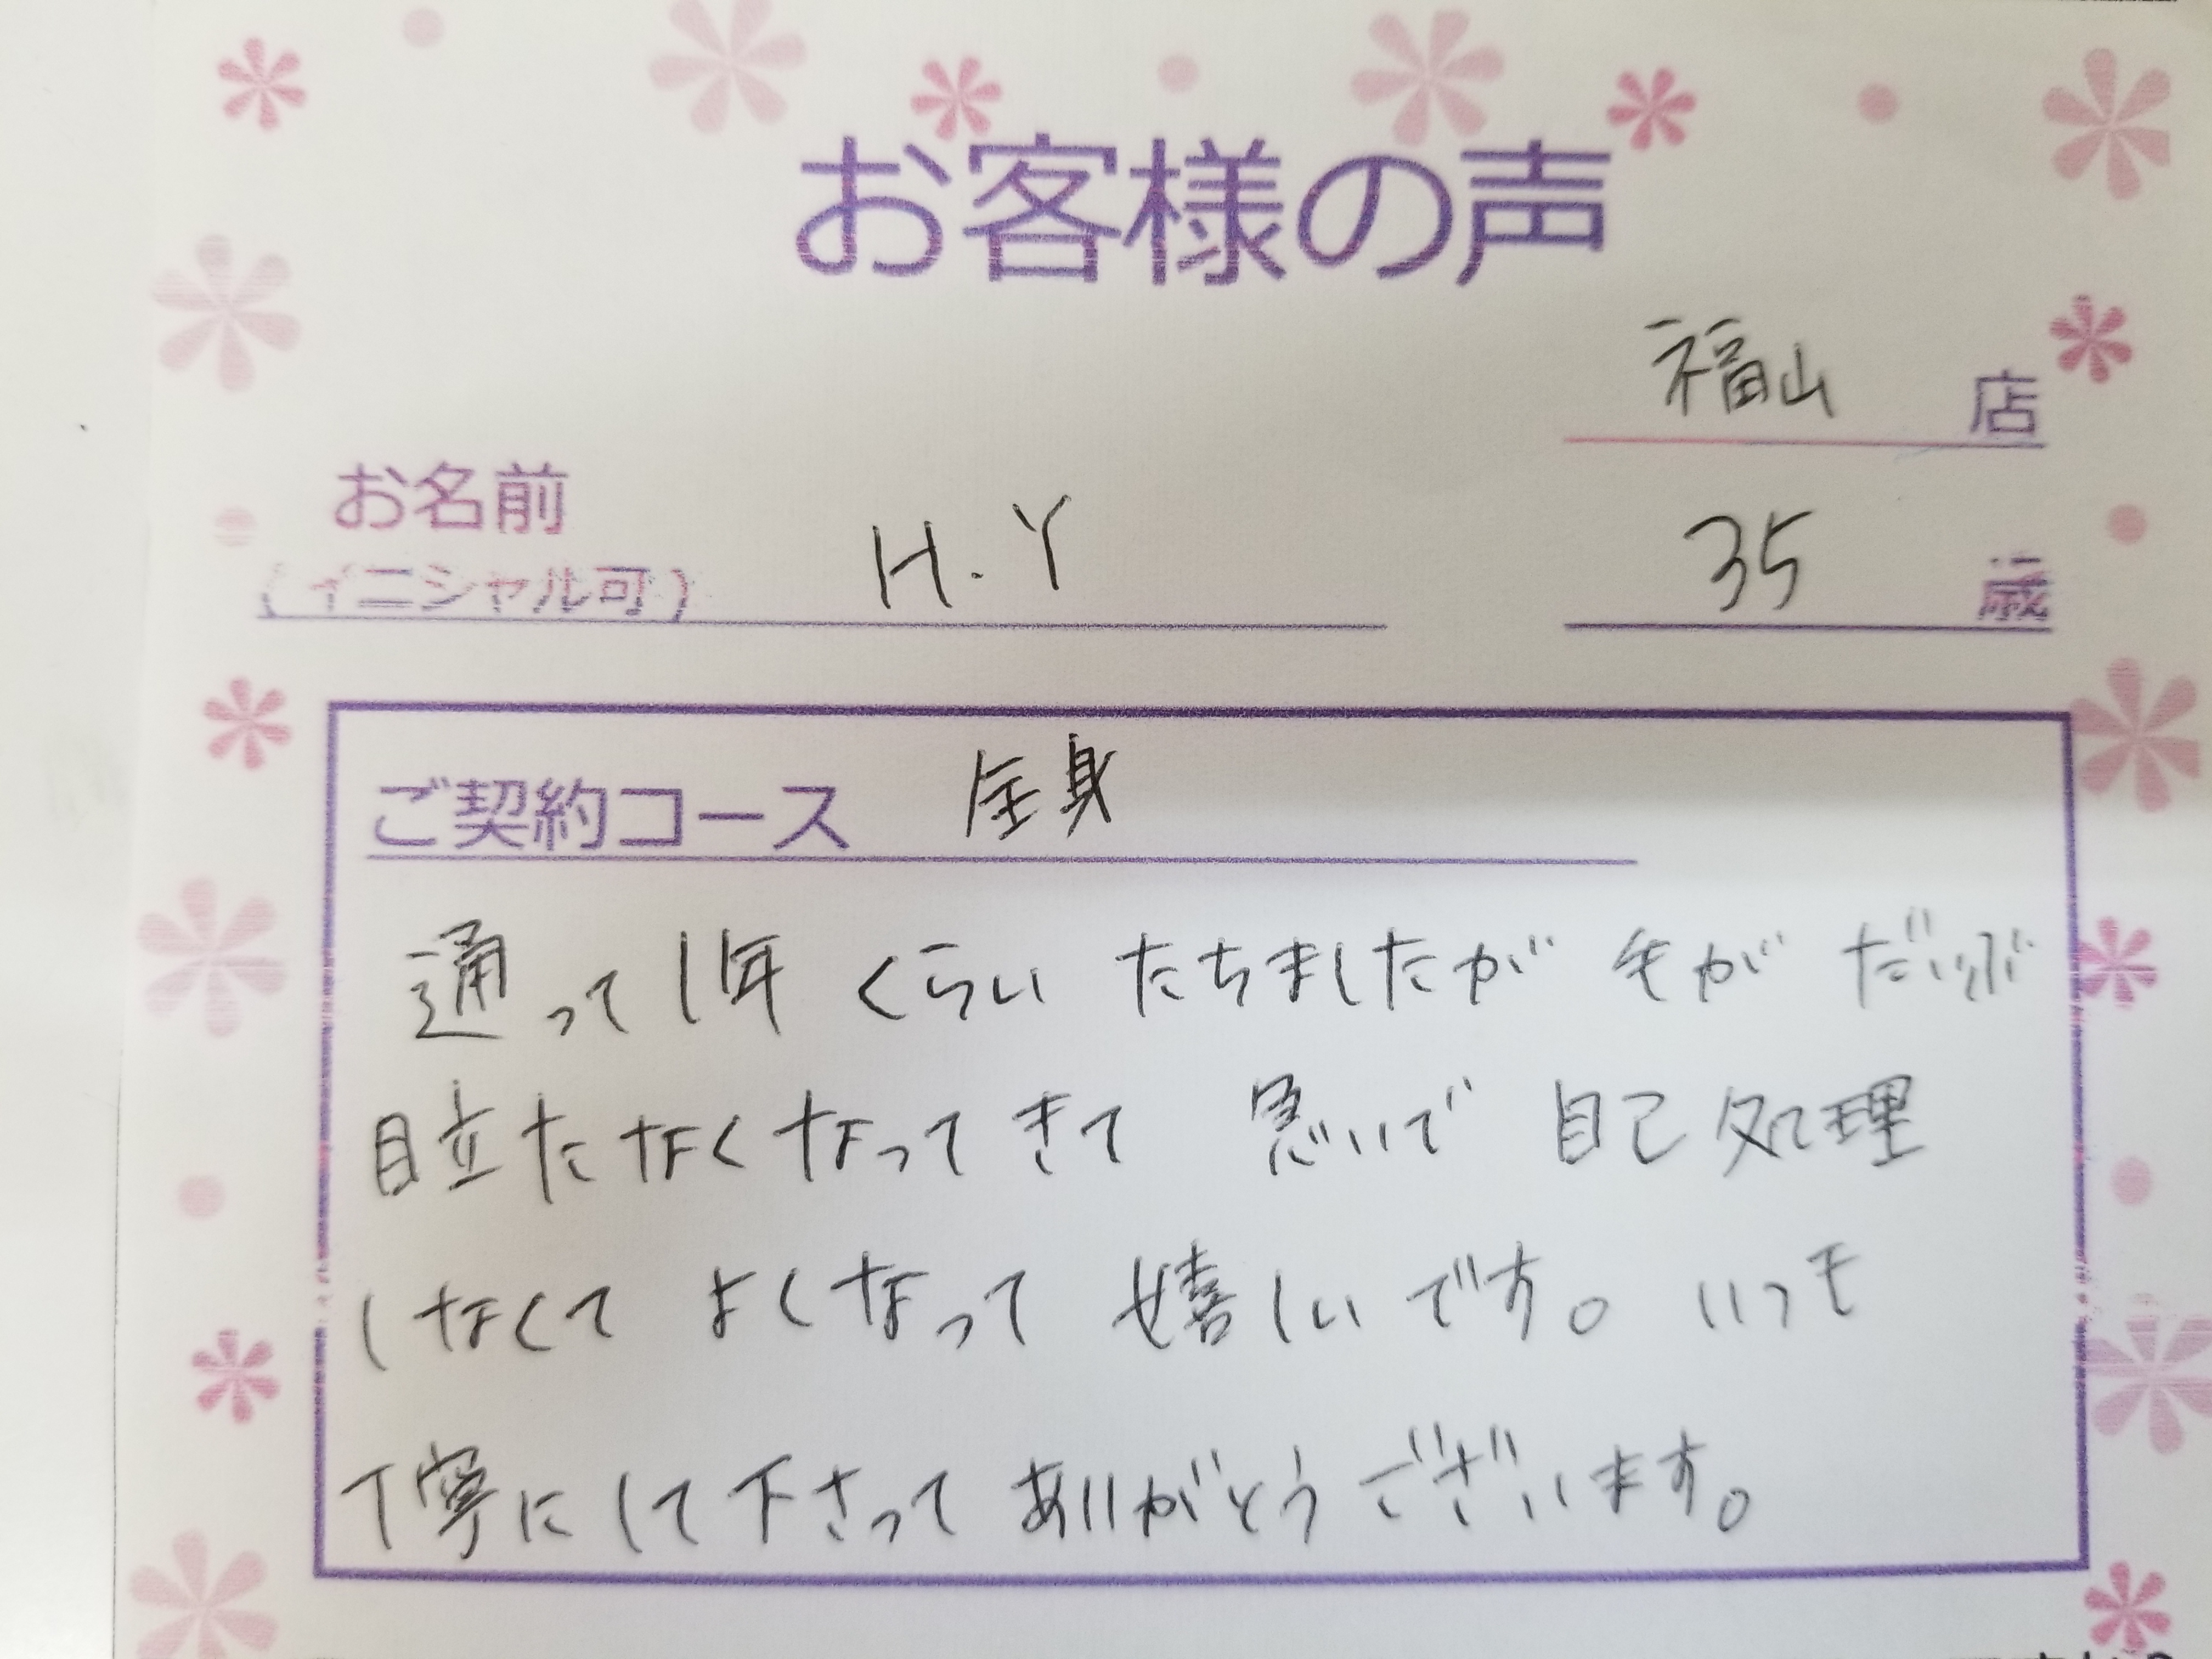 お客様の声
福山 店
お名前
(イニシャル可) H.Y 35 歳
ご契約コース 全身
通って1年くらい たちましたが 毛が だいぶ
目立たなくなってきて 急いで 自己処理
しなくて よくなって 嬉しいです。いつも
丁寧にして下さって ありがとうございます。